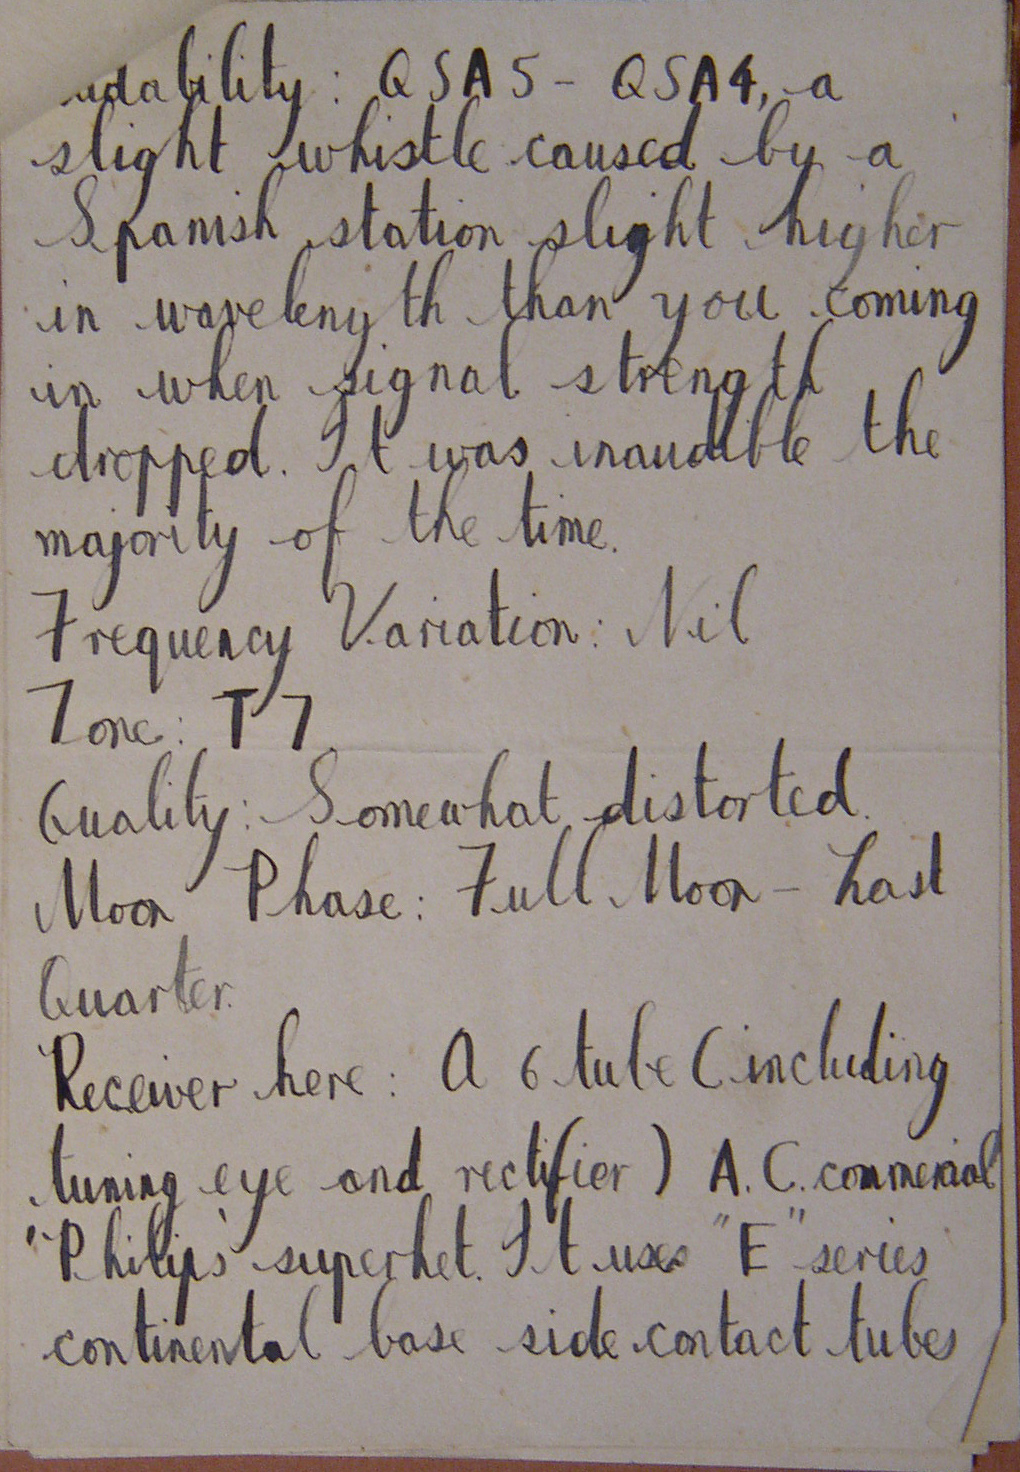 adability: QSA5 - QSA4, a
slight whistle caused by a
Spanish station slight higher
in wavelength than you coming
in when signal strength
dropped. It was inaudible the
majority of the time.
Frequency Variation: Nil
Tone: T7
Quality: Somewhat distorted.
Moon Phase: Full Moon - Last
Quarter.
Receiver here: A 6 tube (including
tuning eye and rectifier) A.C. commercial
"Philips' superhet. It uses "E" series
continental base side contact tubes